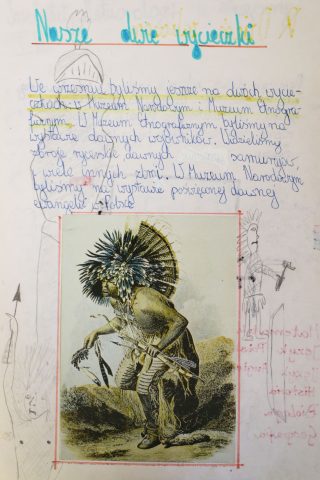 Nasze dwie wycieczki
We wrześniu byliśmy jeszcze na dwóch wycie-
czkach: w Muzeum Narodowym i Muzeum Etnogra-
ficznym. W Muzeum Etnograficznym byliśmy na
wystawie dawnych wojowników. Widzieliśmy
zbroje rycerskie dawnych samurajów
i wiele innych zbroi. W Muzeum Narodowym
byliśmy na wystawie poświęconej dawnej
w Polsce